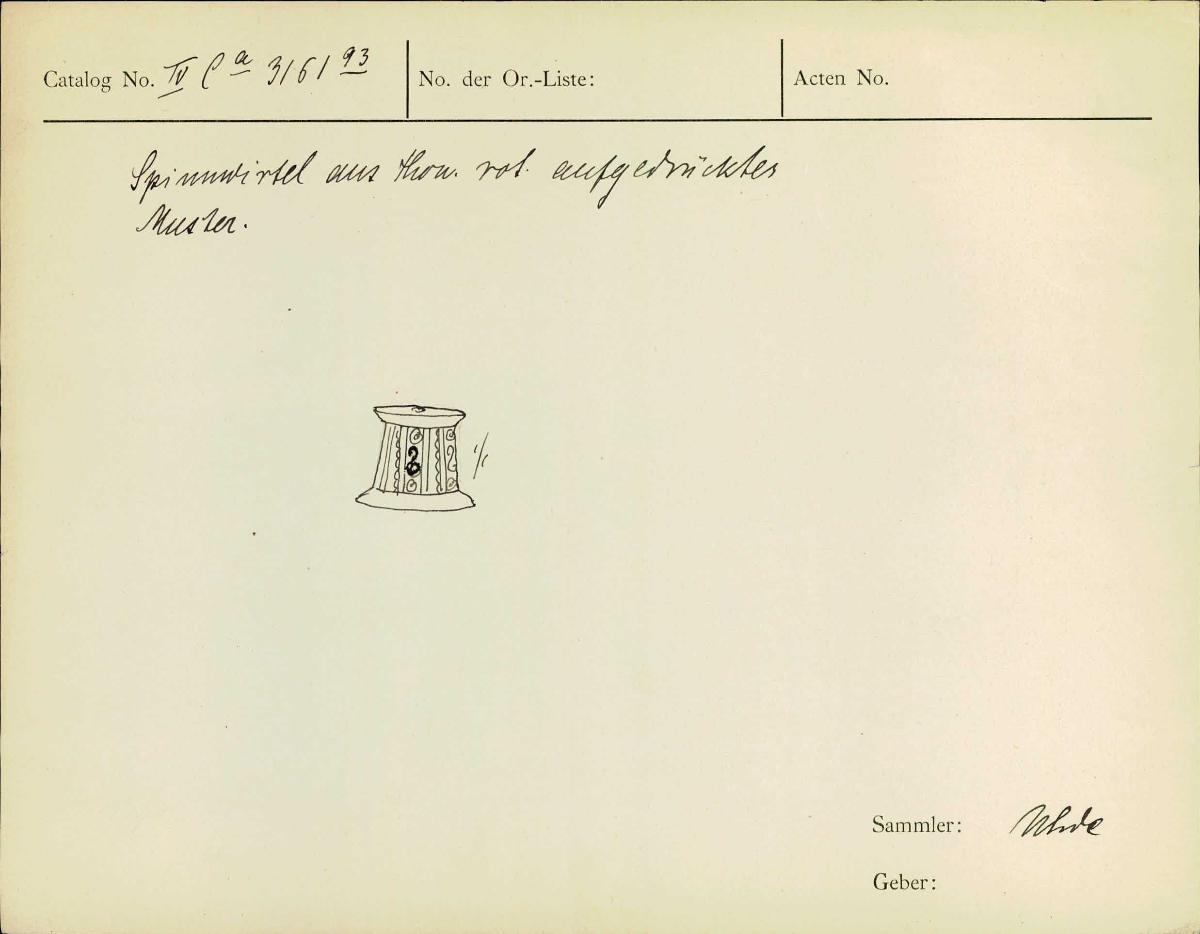 Catalog No. IV Ca 3161 93
No. der Or.-Liste:
Acten No.
Spinnwirtel aus Thon. rot. aufgedrücktes
Muster.
1/1
Sammler: Uhde
Geber: